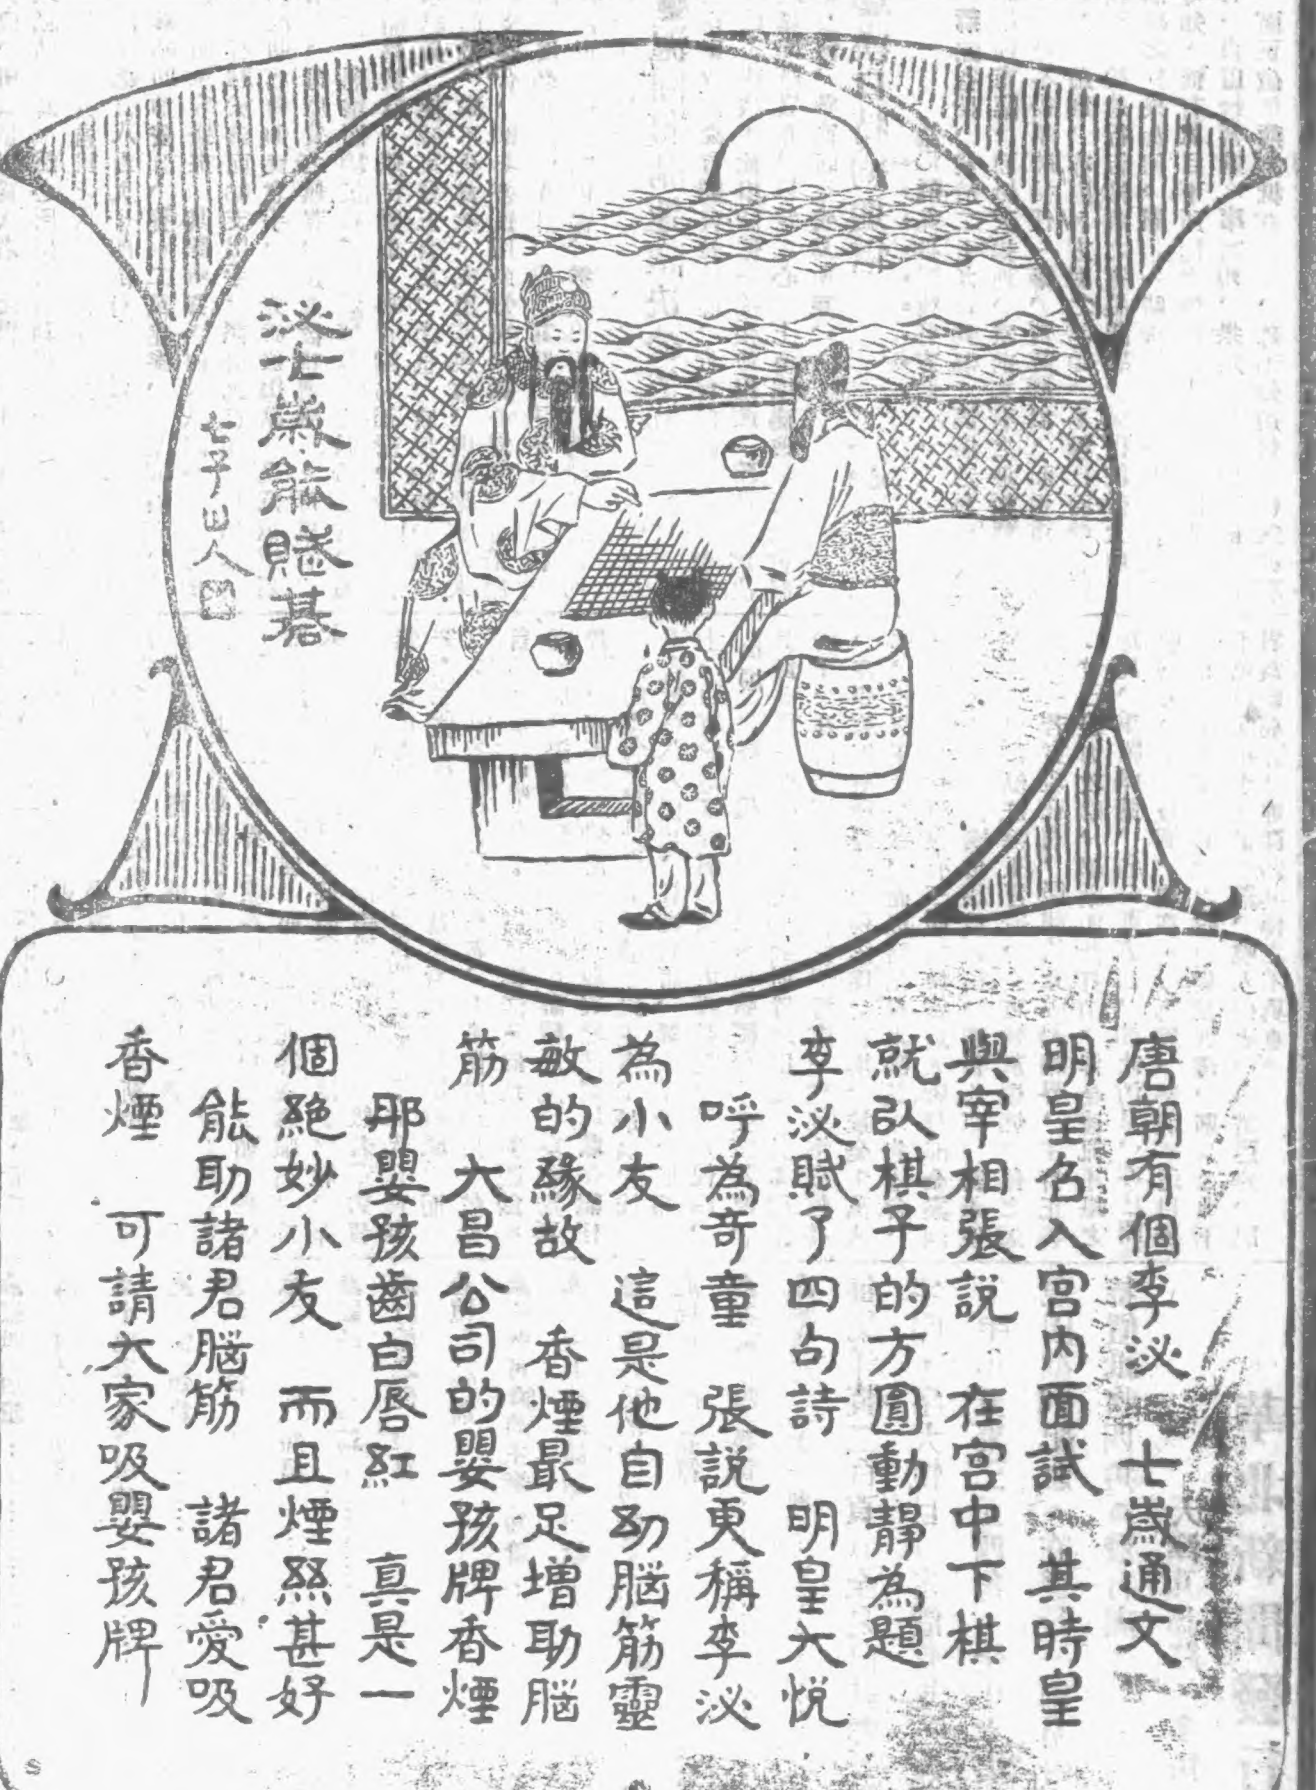 泌七歲能賦碁
七子山人
唐朝有個李泌 七歲通文
明皇召入宮內面試 其時皇
與宰相張説 在宮中下棋
就以棋子的方圓動靜為題
李泌賦了四句詩 明皇大悦
呼為奇童 張説更稱李泌
為小友 這是他自幼腦筋靈
敏的緣故 香煙最足增助腦
筋 大昌公司的嬰孩牌香煙
那嬰孩齒白唇紅 真是一
個絕妙小友 而且煙絲甚好
能助諸君腦筋 諸君愛吸
香煙 可請大家吸嬰孩牌